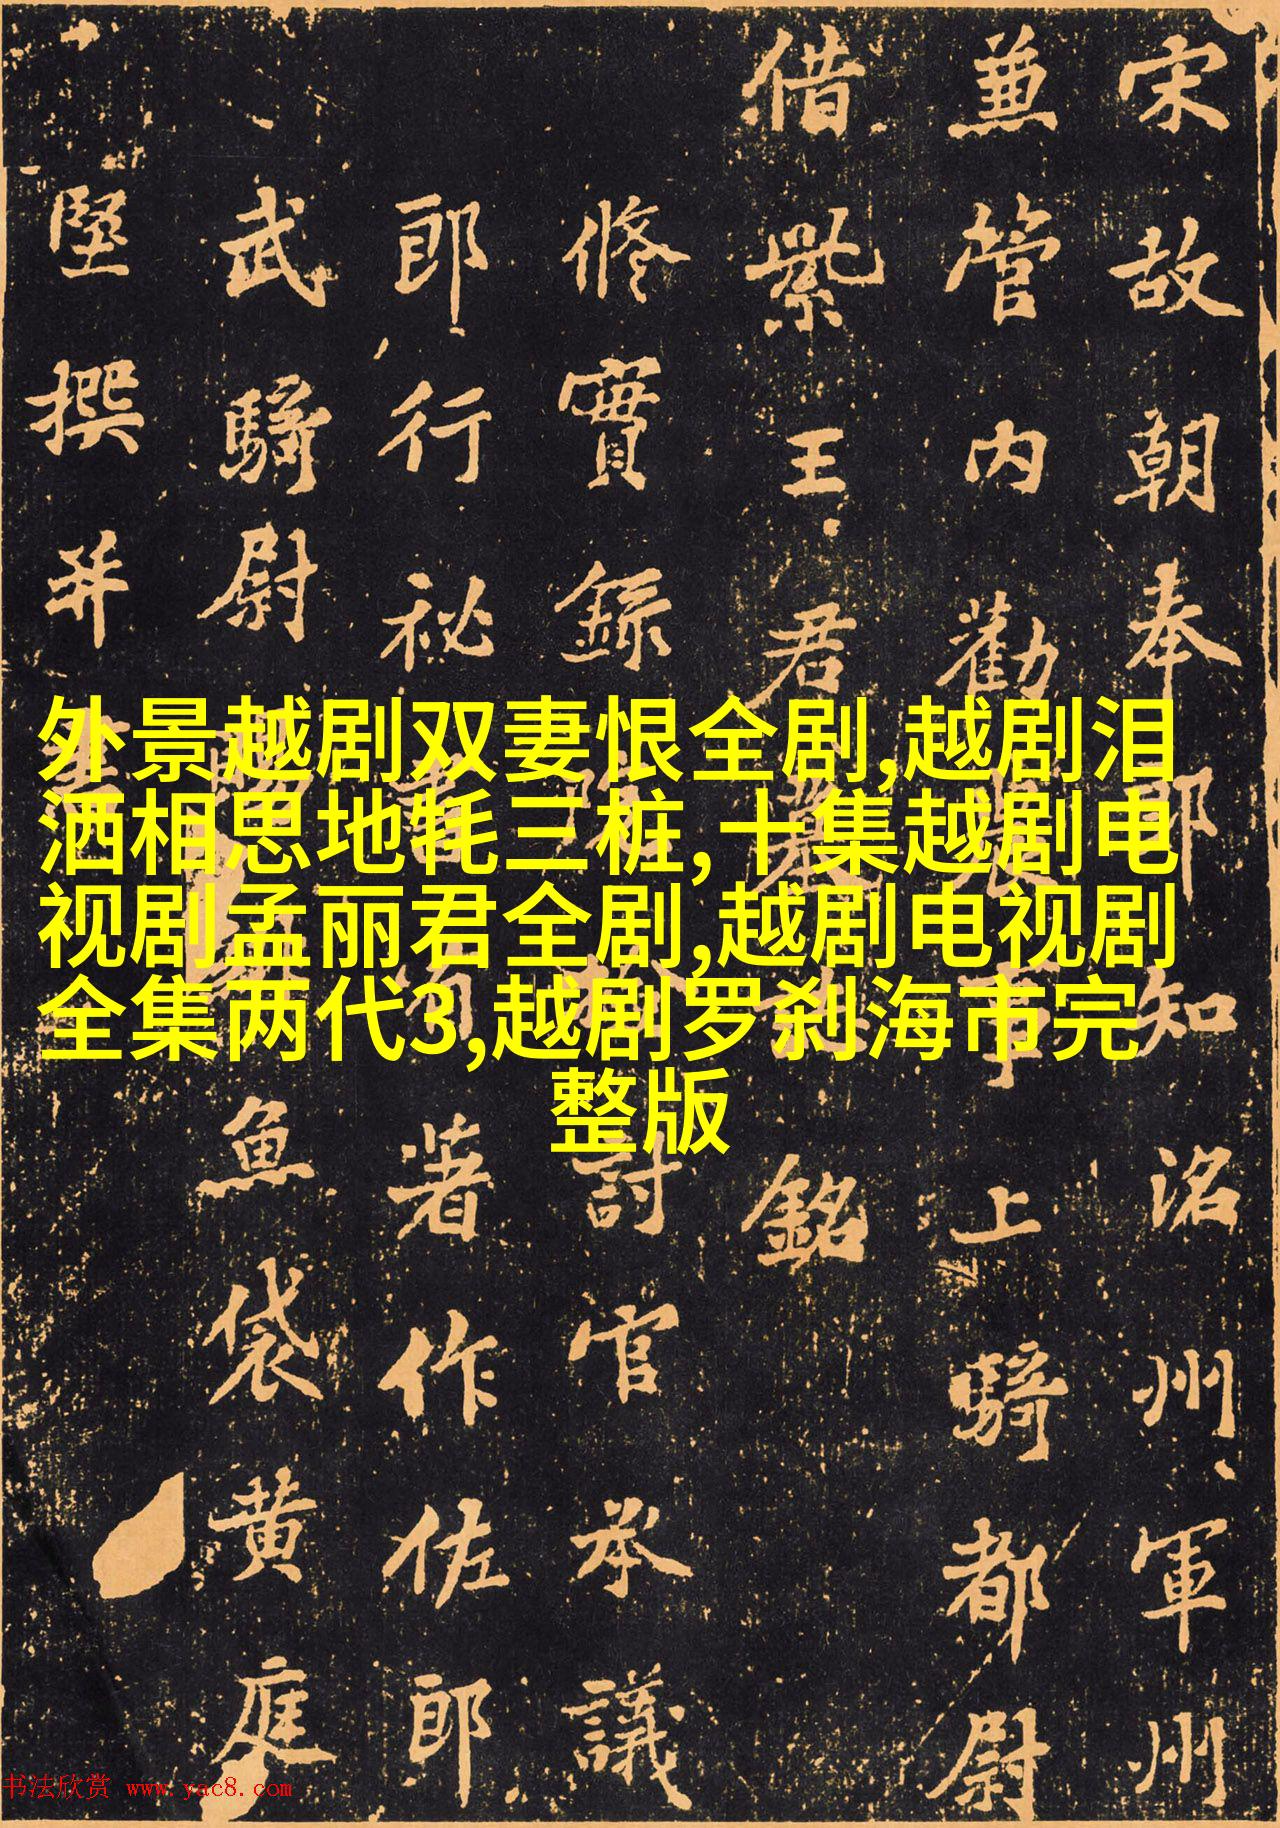 外景越剧双妻恨全剧,越剧泪
洒相思地牦三桩,十集越剧电
视剧孟丽君全剧,越剧电视剧
全集两代3,越剧罗刹海市完
整版
宋故朝奉郎知洺州軍州
兼管内勸農事上騎都尉
借紫王君墓誌銘
修實録檢討官承議
郎行秘書省著作佐郎
武騎尉賜緋魚袋黄庭
堅撰并書
书法欣赏 www.yac8.com